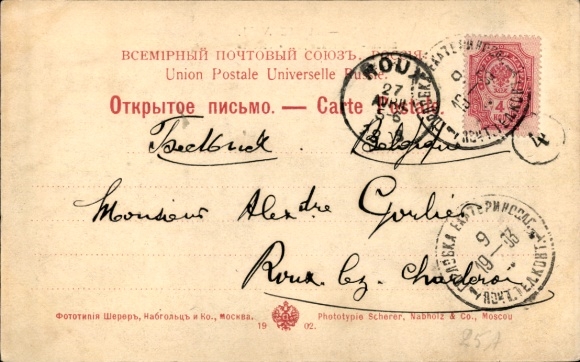 ВСЕМІРНЫЙ ПОЧТОВЫЙ СОЮЗЪ. РОССІЯ.
Union Postale Universelle Russie.
Открытое письмо. — Carte Postale.
ROUX
27
AVRIL
4
4
Belgique
Monsieur Alexdre Gorlier
Roux lez Charleroi
ЕКАТЕРИНОСЛ.
ПОЧТ. ТЕЛ. КОН.
9
19-03
Фототипія Шереръ, Набгольцъ и Ко., Москва.
19 02.
Phototypie Scherer, Nabholz & Co., Moscou
251